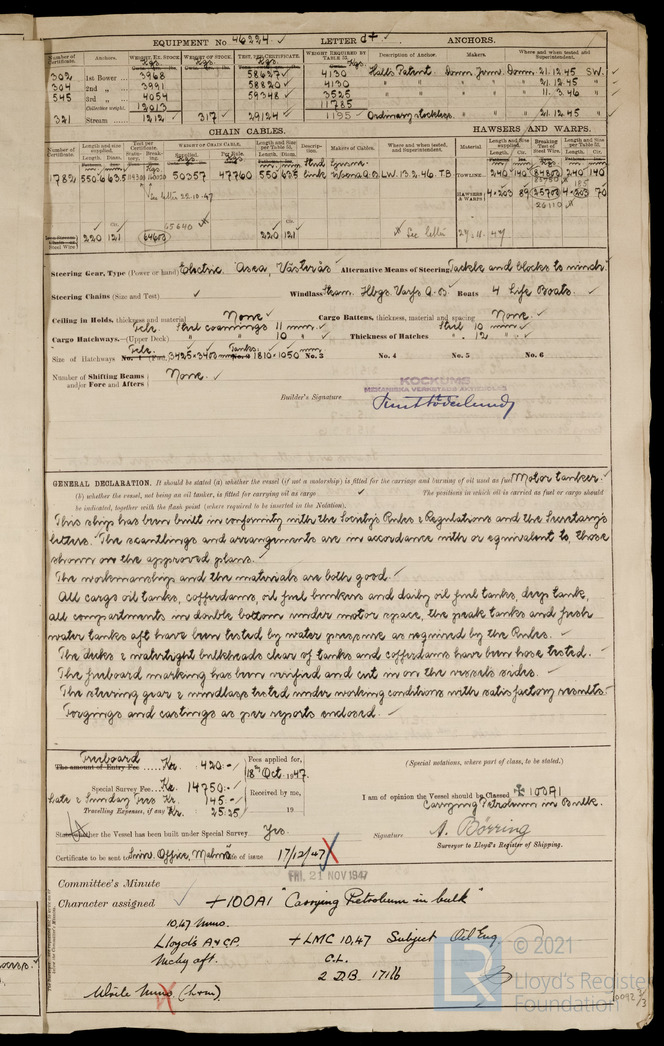 EQUIPMENT No 46224 LETTER d+ ANCHORS.
Number of Certificate. Anchors. WEIGHT, EX. STOCK Kgs. WEIGHT OF STOCK. Kgs. TEST, PER CERTIFICATE. Kgs. WEIGHT REQUIRED BY TABLE 53. Kgs. Description of Anchor. Makers. Where and when tested and Superintendent.
302 1st Bower 3968 58627 4130 Halls Patent Domn. Jernv. Domn. 21.12.45 SW.
304 2nd „ 3991 58820 4130 " " " " 21.12.45 "
545 3rd „ 4054 59348 3525 " " " " 11.3.46 "
Collective weight. 12013 11785
321 Stream 1212 317 29124 1195 Ordinary stockless " " 21.12.45 "
CHAIN CABLES. HAWSERS AND WARPS.
Number of Certificate. Length and size supplied. Length. Diam. Test per Certificate. Statutory. Breaking. WEIGHT OF CHAIN CABLE. Supplied. Per Rule. Length and Size per Table 53. Length. Diam. Description. Makers of Cables. Where and when tested, and Superintendent. Material Length and Size supplied. Length. Cir. Breaking Test of Steel Wire. Length and Size per Table 53. Length. Cir.
1782 550 63.5 114300 160020 50357 47760 550 63.5 Stud links LW. 13.2.46. TB TOWLINE 240 140 84800 240 140
HAWSERS & WARPS 4×203 89 35700 4×203 70
26110
See letter 25.10.47
65640
220 121 64608 220 121 See letter 24.11.47
Steering Gear, Type (Power or hand) Electric Asea, Västerås Alternative Means of Steering Tackle and blocks to winch
Steering Chains (Size and Test) Windlass Steam. Hbgs Varfs A.B. Boats 4 Life Boats.
Ceiling in Holds, thickness and material None Cargo Battens, thickness, material and spacing None.
Cargo Hatchways.—(Upper Deck) Steel coamings 11 mm. " " 10 " Thickness of Hatches Steel 10 mm. " 12 "
Size of Hatchways 3425×3403 Tanks 1810×1050 mm. No. 3 No. 4 No. 5 No. 6
Number of Shifting Beams and/or Fore and Afters None.
KOCKUMS
MEKANISKA VERKSTADS AKTIEBOLAG
Builder's Signature
GENERAL DECLARATION. It should be stated (a) whether the vessel (if not a motorship) is fitted for the carriage and burning of oil used as fuel Motor tanker.
(b) whether the vessel, not being an oil tanker, is fitted for carrying oil as cargo The positions in which oil is carried as fuel or cargo should
be indicated, together with the flash point (where required to be inserted in the Notation).
This ship has been built in conformity with the Society's Rules & Regulations and the Secretary's
letters. The scantlings and arrangements are in accordance with or equivalent to, those
shown on the approved plans.
The workmanship and the materials are both good.
All cargo oil tanks, cofferdams, oil fuel bunkers and daily oil fuel tanks, deep tank,
all compartments in double bottom under motor space, the peak tanks and fresh
water tanks aft have been tested by water pressure as required by the Rules.
The decks & watertight bulkheads clear of tanks and cofferdams have been hose tested.
The freeboard marking has been verified and cut in on the vessels sides.
The steering gear & windlass tested under working conditions with satisfactory results.
Forgings and castings as per reports enclosed.
Freeboard
The amount of Entry Fee Kr. 420:-
Special Survey Fee Kr. 14750:-
Late & Sunday Fees Kr. 145:-
Travelling Expenses, if any Kr. 25:25
Fees applied for, 18th Oct. 1947.
Received by me, 19
(Special notations, where part of class, to be stated.)
I am of opinion the Vessel should be Classed ✠ 100A1
Carrying Petroleum in Bulk.
State whether the Vessel has been built under Special Survey Yes. Signature A. Börring
Surveyor to Lloyd's Register of Shipping.
Certificate to be sent to Surv. Office, Malmö Date of issue 17/12/47
FRI. 21 NOV 1947
Committee's Minute
Character assigned +100A1 "Carrying Petroleum in bulk"
10,47 Mmo.
Lloyd's A & C.P. + LMC 10,47 Subject Oil Eng.
Mchy aft. C.L.
2 D.B. 171 lb
Write Mmo
© 2021
LR
Lloyd's Register
Foundation